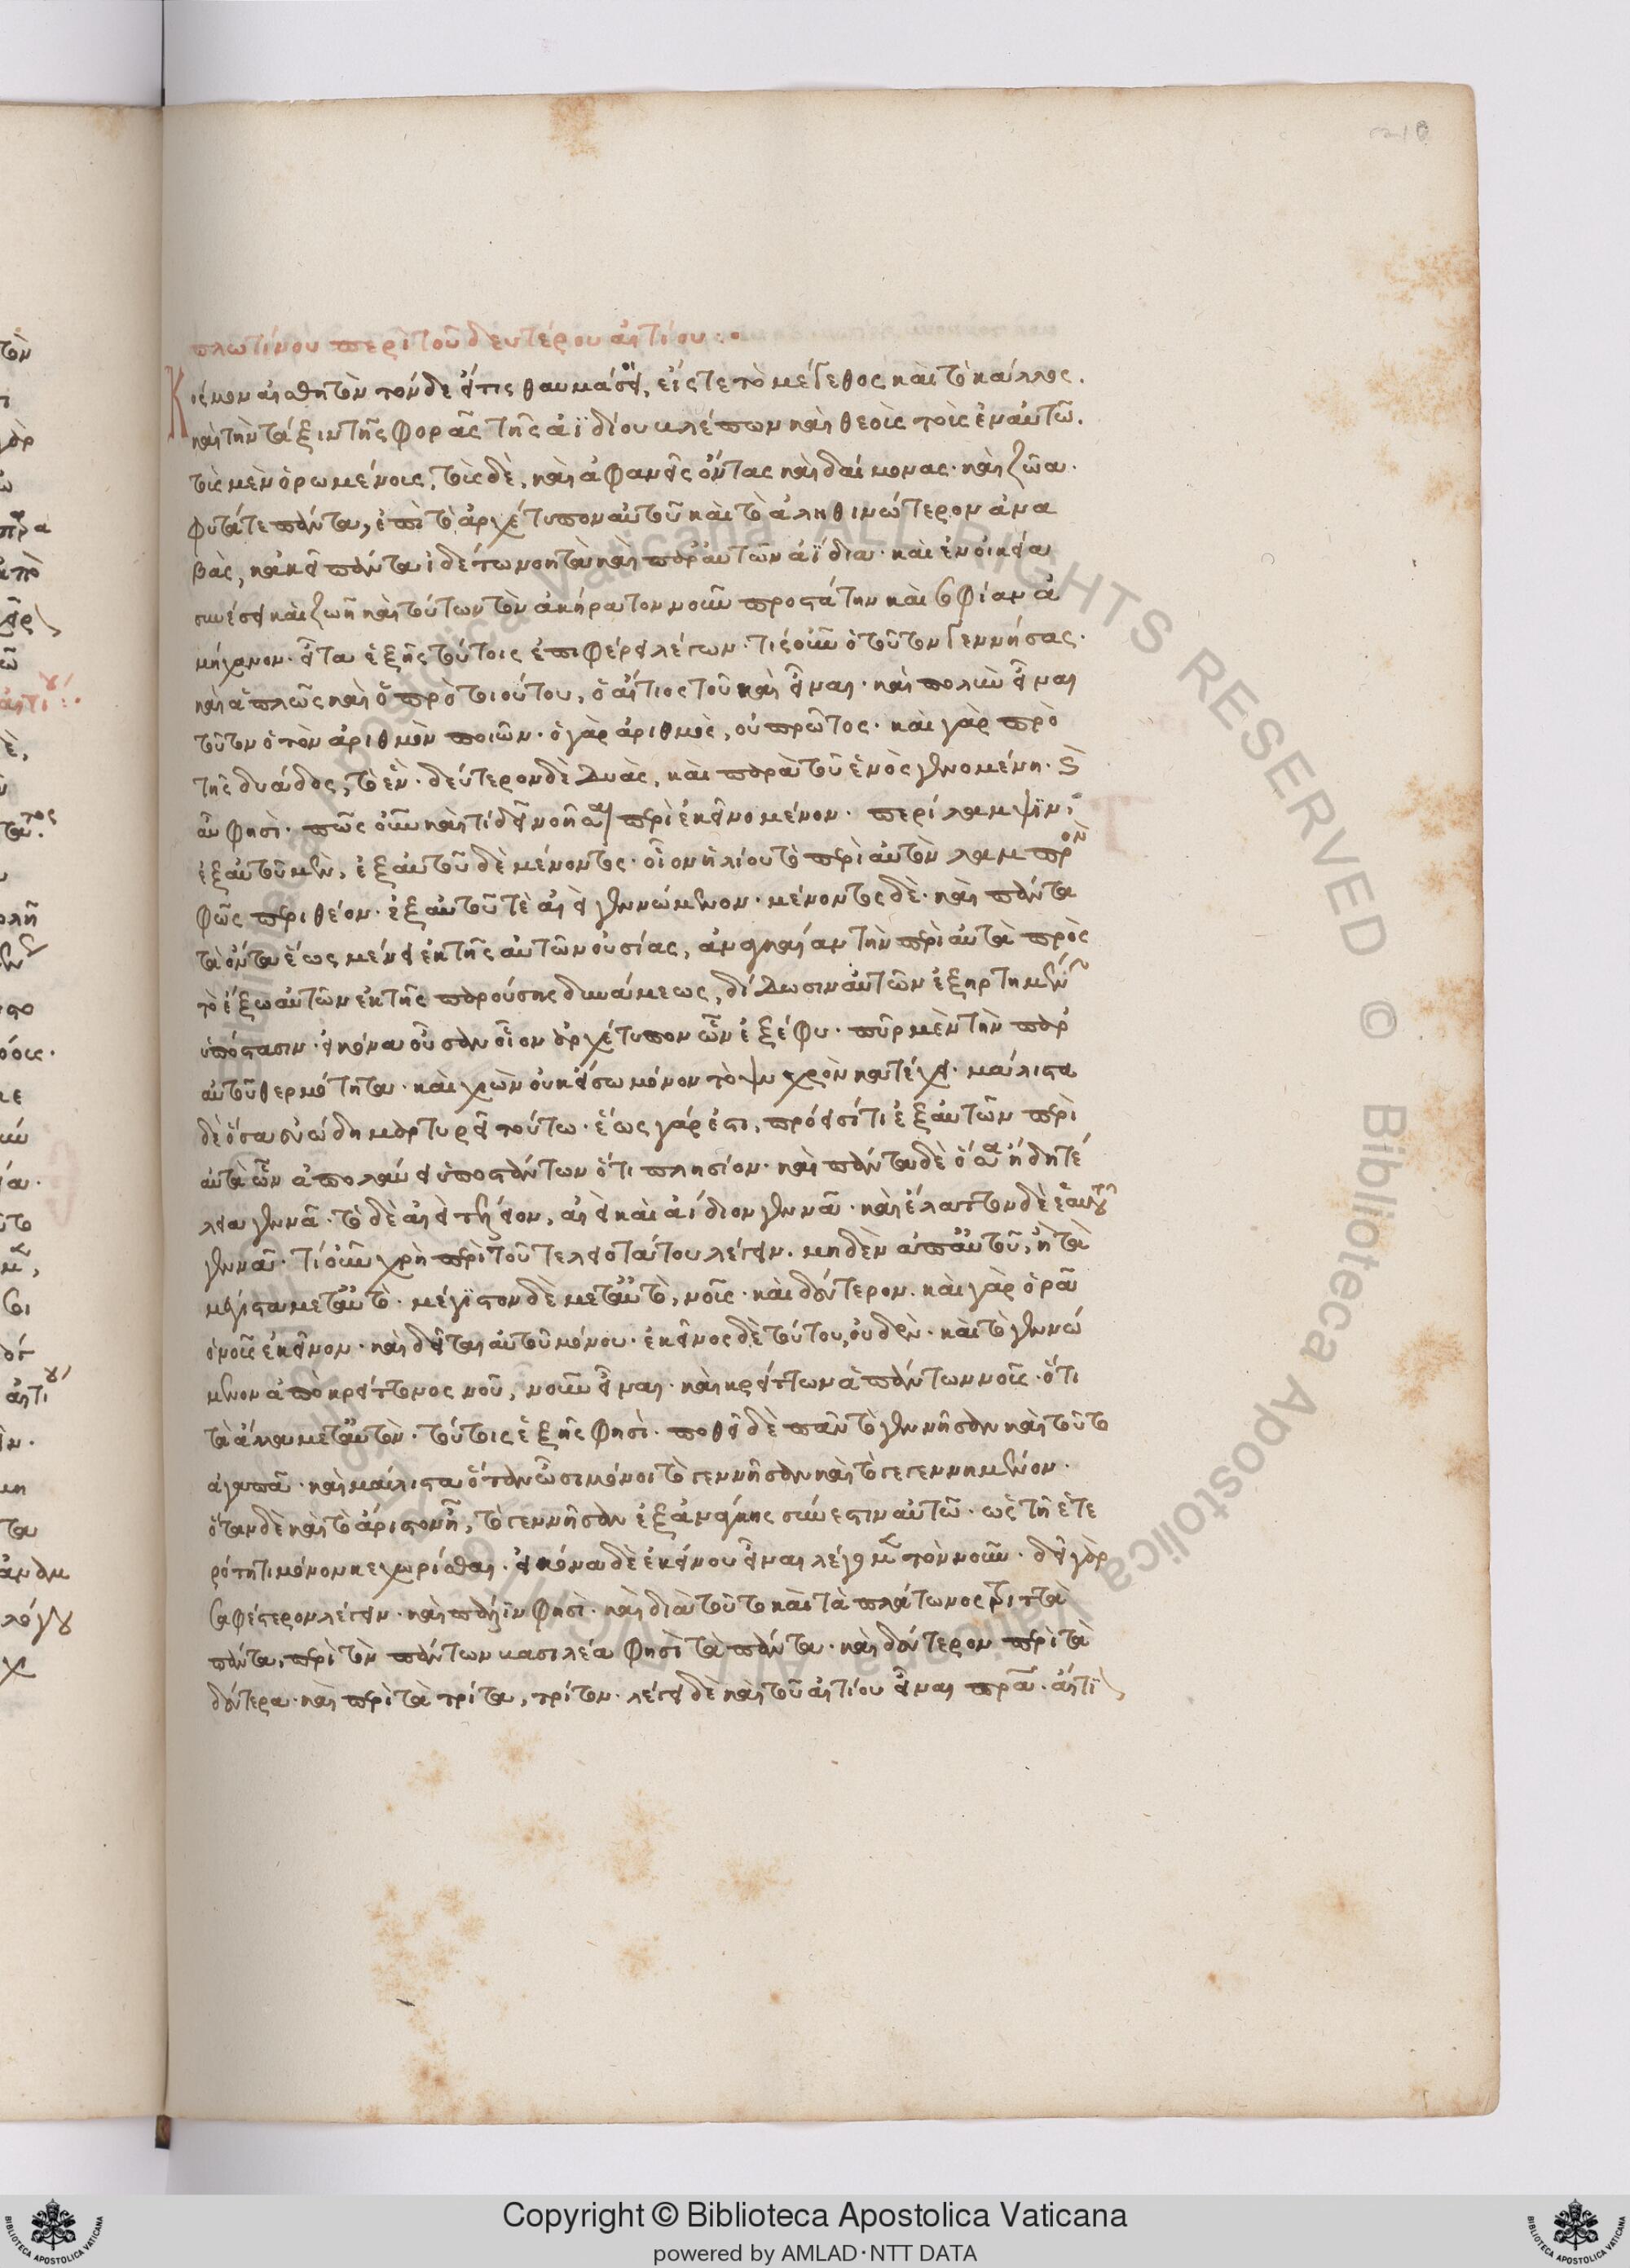 πλωτίνου περὶ τοῦ δευτέρου αἰτίου :·
Κόσμον αἰσθητὸν τόνδε εἴ τις θαυμάζει, εἴς τε τὸ μέγεθος καὶ τὸ κάλλος.
καὶ τὴν τάξιν τῆς φορᾶς τῆς ἀϊδίου βλέπων καὶ θεοὶς τοὶς ἐν αὐτῶ.
τοὶς μὲν ὁρωμένοις, τοὶς δὲ, καὶ ἀφανεῖς ὄντας καὶ δαίμονας· καὶ ζῶα.
φυτά τε πάντα, ἐπὶ τὸ ἀρχέτυπον αὐτοῦ καὶ τὸ ἀληθινώτερον ἀνα
βὰς, κἀκεῖ πάντα ἰδέτω νοητὰ καὶ παρ' αὐτῶν ἀΐδια· καὶ ἐν οἰκεία
συνέσει καὶ ζωῆ καὶ τούτων τὸν ἀκήρατον νοῦν προστάτην καὶ σοφίαν ἀ
μήχανον· εἶτα ἑξῆς τούτοις ἐπιφέρει λέγων· τίς οὖν ὁ τοῦτον γεννήσας·
καὶ ἁπλῶς καὶ ὁ πρὸ τοιούτου, ὁ αἴτιος τοῦ καὶ εἶναι· καὶ πολὺν εἶναι
τοῦτον ὁ τὸν ἀριθμὸν ποιῶν· ὁ γὰρ ἀριθμὸς, οὐ πρῶτος· καὶ γὰρ πρὸ
τῆς δυάδος, τὸ ἓν· δεύτερον δὲ δυὰς, καὶ παρὰ τοῦ ἑνὸς γινομένη·
αὖ φησὶ· πῶς οὖν καὶ τί δεῖ νοῆσαι περὶ ἐκεῖνο μένον· περίλαμψϊν,
ἐξ αὐτοῦ μὲν, ἐξ αὐτοῦ δὲ μένοντος· οἷον ἡλίου τὸ περὶ αὐτὸν λαμπρὸν
φῶς περιθέον· ἐξ αὐτοῦ τὲ ἀεὶ γεννώμενον· μένοντος δὲ· καὶ πάντα
τὰ ὄντα ἕως μένει ἐκ τῆς αὐτῶν οὐσίας, ἀναγκαίαν τὴν περὶ αὐτὰ πρὸς
τὸ ἔξω αὐτῶν ἐκ τῆς παρούσης δυνάμεως, δίδωσιν αὐτῶν ἐξηρτημένην
ὑπόστασιν· εἰκόνα οὖσαν οἷον ἀρχέτυπον ὧν ἐξέφυ· πῦρ μὲν τὴν παρ'
αὐτοῦ θερμότητα· καὶ χιὼν οὐκ εἴσω μόνον τὸ ψυχρὸν κατέχει· μάλιστα
δὲ ὅσα εὐώδη μαρτυρεῖ τούτω· ἕως γάρ ἐστι, πρόεισί τι ἐξ αὐτῶν περὶ
αὐτὰ ὧν ἀπολαύει ὑποστάντων ὅτι πλησίον· καὶ πάντα δὲ ὅσα ἤδη τέ
λεια γεννᾶ· τὸ δὲ ἀεὶ τέλειον, ἀεὶ καὶ ἀίδιον γεννᾶ· καὶ ἔλαττον δὲ ἑαυτοῦ
γεννᾶ· τί οὖν χρὴ περὶ τοῦ τελειοτάτου λέγειν· μηδὲν ἀπ' αὐτοῦ, ἢ τὰ
μέγιστα μετ' αὐτὸ· μέγϊστον δὲ μετ' αὐτὸ, νοῦς· καὶ δεύτερον· καὶ γὰρ ὁρᾶ
ὁ νοῦς ἐκεῖνον· καὶ δεῖται αὐτοῦ μόνου· ἐκεῖνος δὲ τούτου, οὐδὲν· καὶ τὸ γεννώ
μενον ἀπὸ κρείττονος νοῦ, νοῦν εἶναι· καὶ κρείττων ἁπάντων νοῦς· ὅτι
τὰ ἄλλα μετ' αὐτὸν· τούτοις ἑξῆς φησὶ· ποθεῖ δὲ πᾶν τὸ γεννῆσαν καὶ τοῦτο
ἀγαπᾶ· καὶ μάλιστα ὅταν ὦσι μόνοι τὸ γεννῆσαν καὶ τὸ γεγεννημένον·
ὅταν δὲ καὶ τὸ ἄριστον ἦ, τὸ γεννῆσαν ἐξ ἀνάγκης σύνεστιν αὐτῶ· ὡς τῆ ἑτε
ρότητι μόνον κεχωρίσθαι· εἰκόνα δὲ ἐκείνου εἶναι λέγομεν τὸν νοῦν· δεῖ γὰρ
σαφέστερον λέγειν· καὶ πάλιν φησὶ· καὶ διὰ τοῦτο καὶ τὰ πλάτωνος τριττὰ
πάντα, περὶ τὸν πάντων βασιλέα φησὶ τὰ πάντα· καὶ δεύτερον περὶ τὰ
δεύτερα· καὶ περὶ τὰ τρίτα, τρίτον· λέγει δὲ καὶ τοῦ αἰτίου εἶναι πατέρα· αἴτι